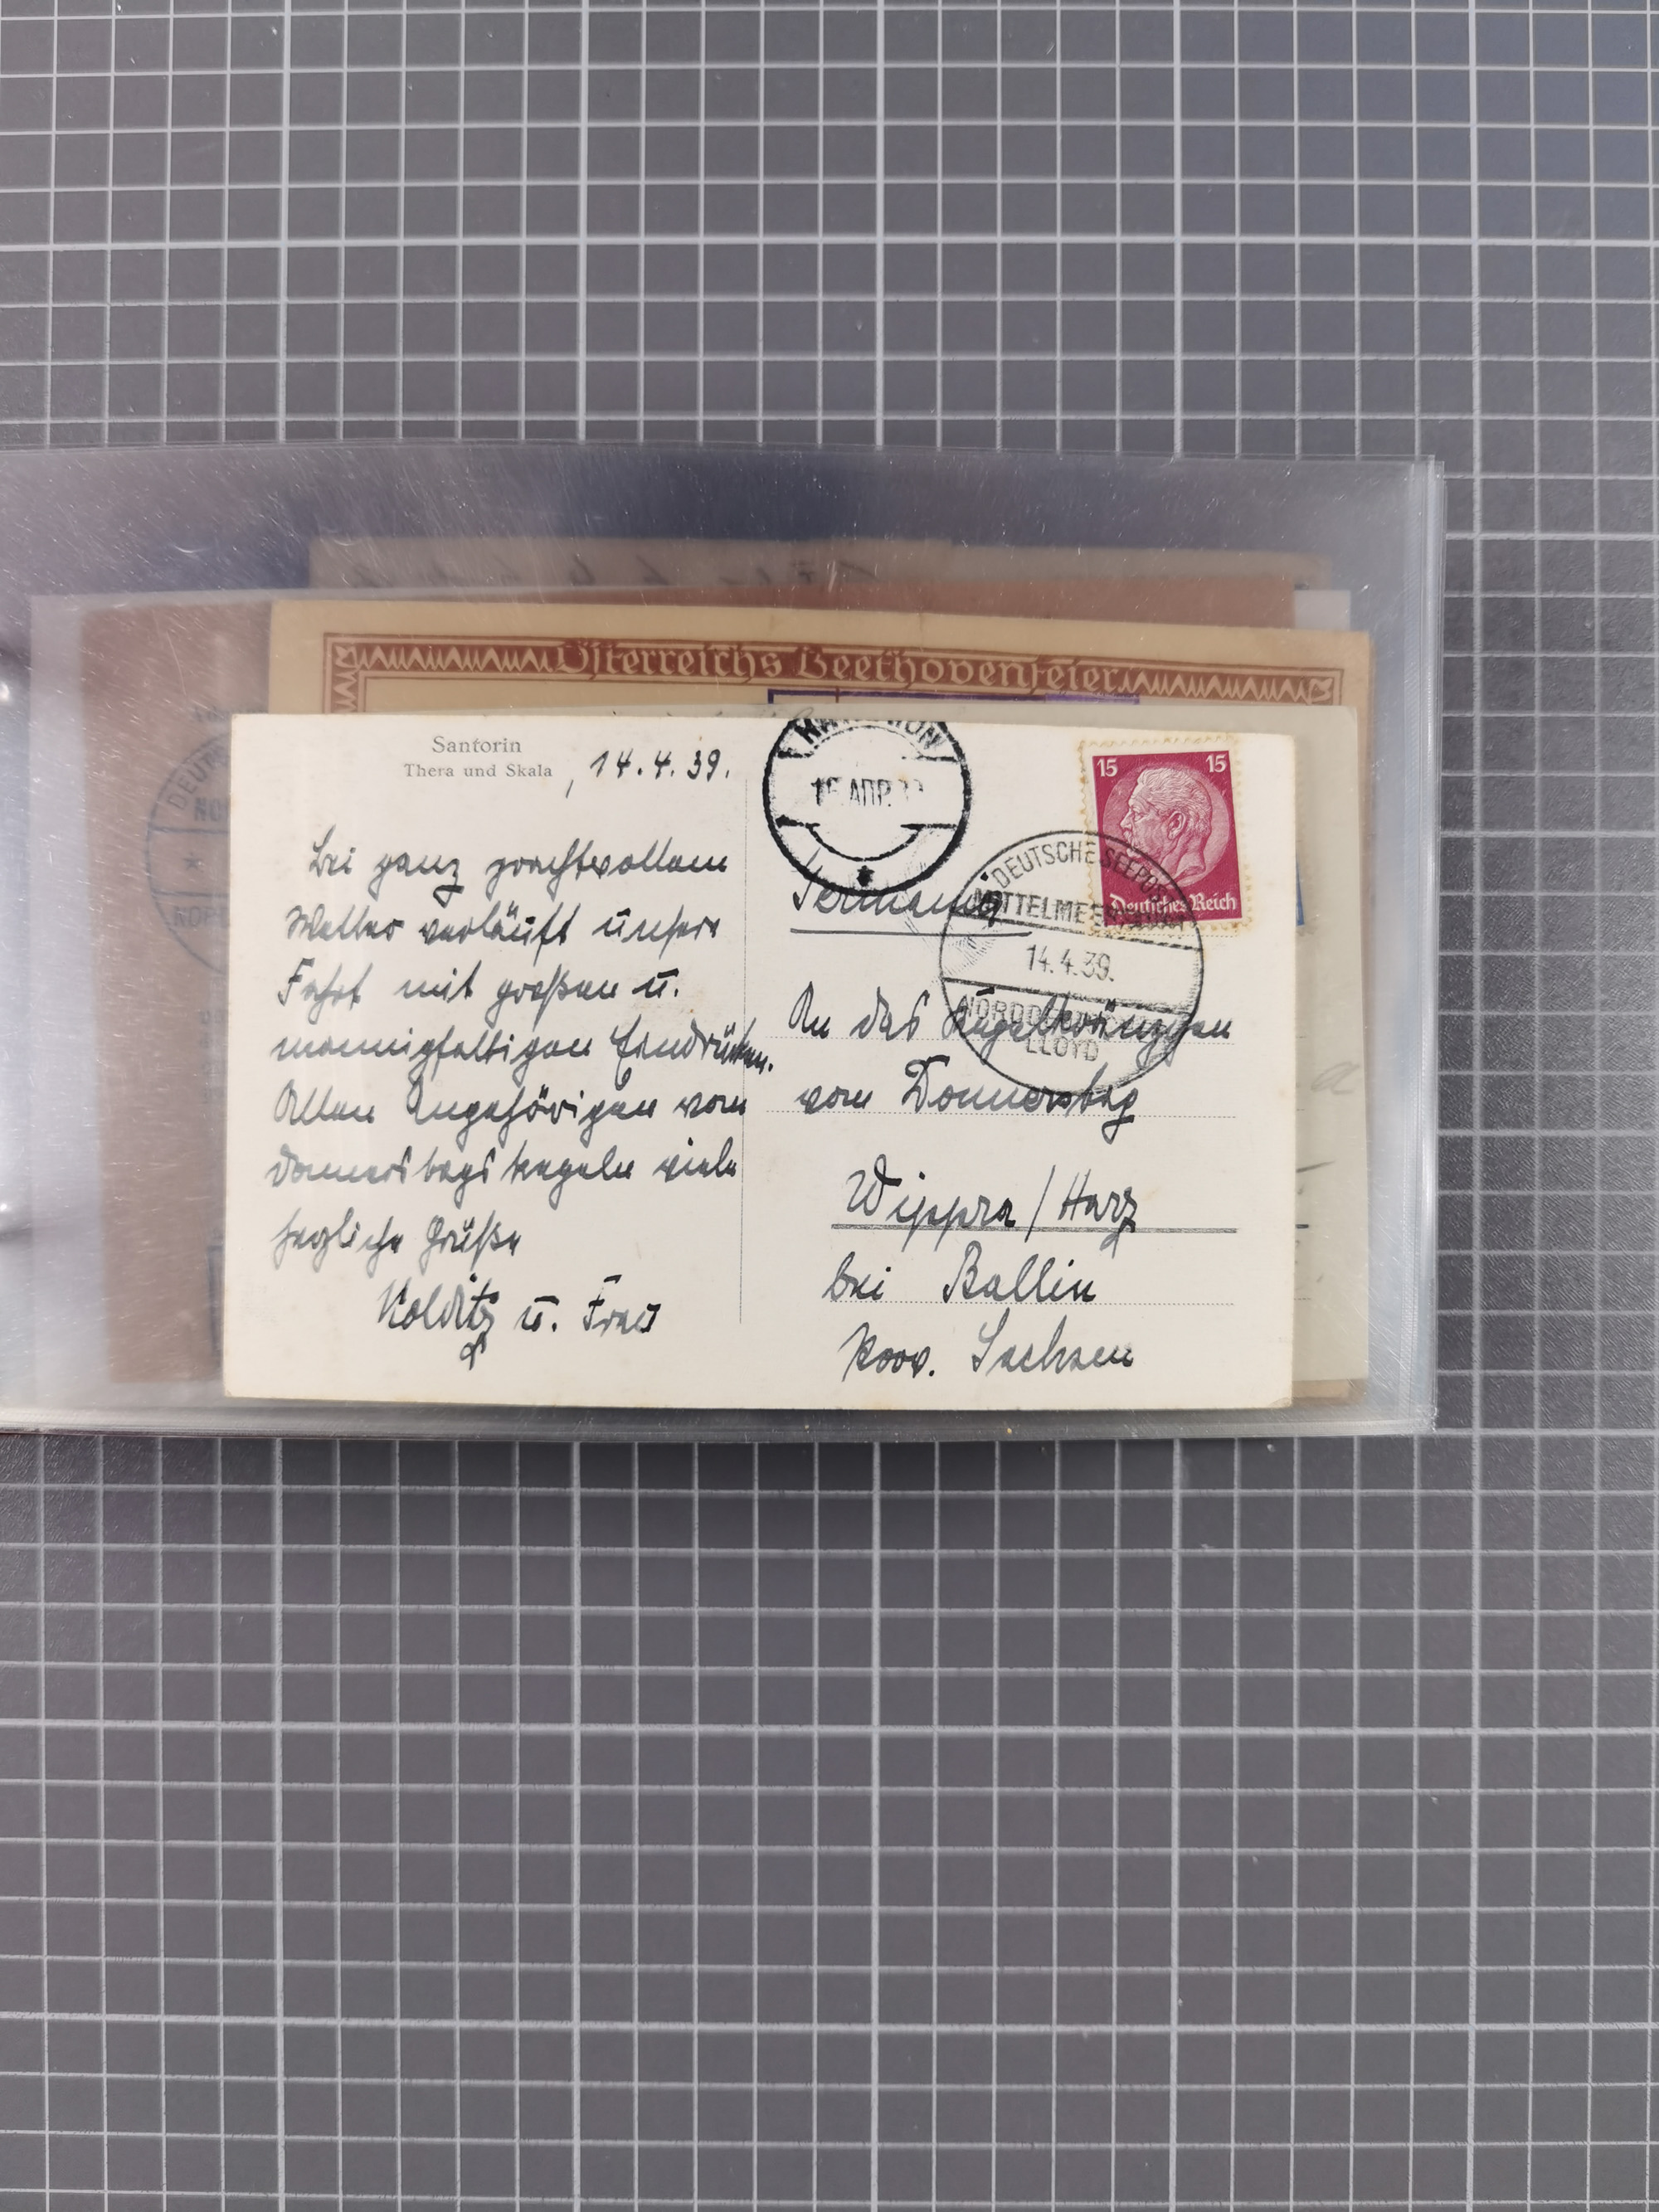 Österreichs Beethovenfeier
Santorin
Thera und Skala
, 14.4.39.
Bei ganz prachtvollem
Wetter verläuft unsere
Fahrt mit großen u.
mannigfaltigen Eindrücken.
Allen Angehörigen vom
Donnerstagskegeln viele
herzliche Grüße
Kolditz u. Frau
ΑΠΡ.
15 15
Deutsches Reich
DEUTSCHE SEEPOST
MITTELMEER
14.4.39.
NORDD
LLOYD
Germania
An das Kegelkränzchen
vom Donnerstag
Wippra / Harz
bei Ballin
Prov. Sachsen